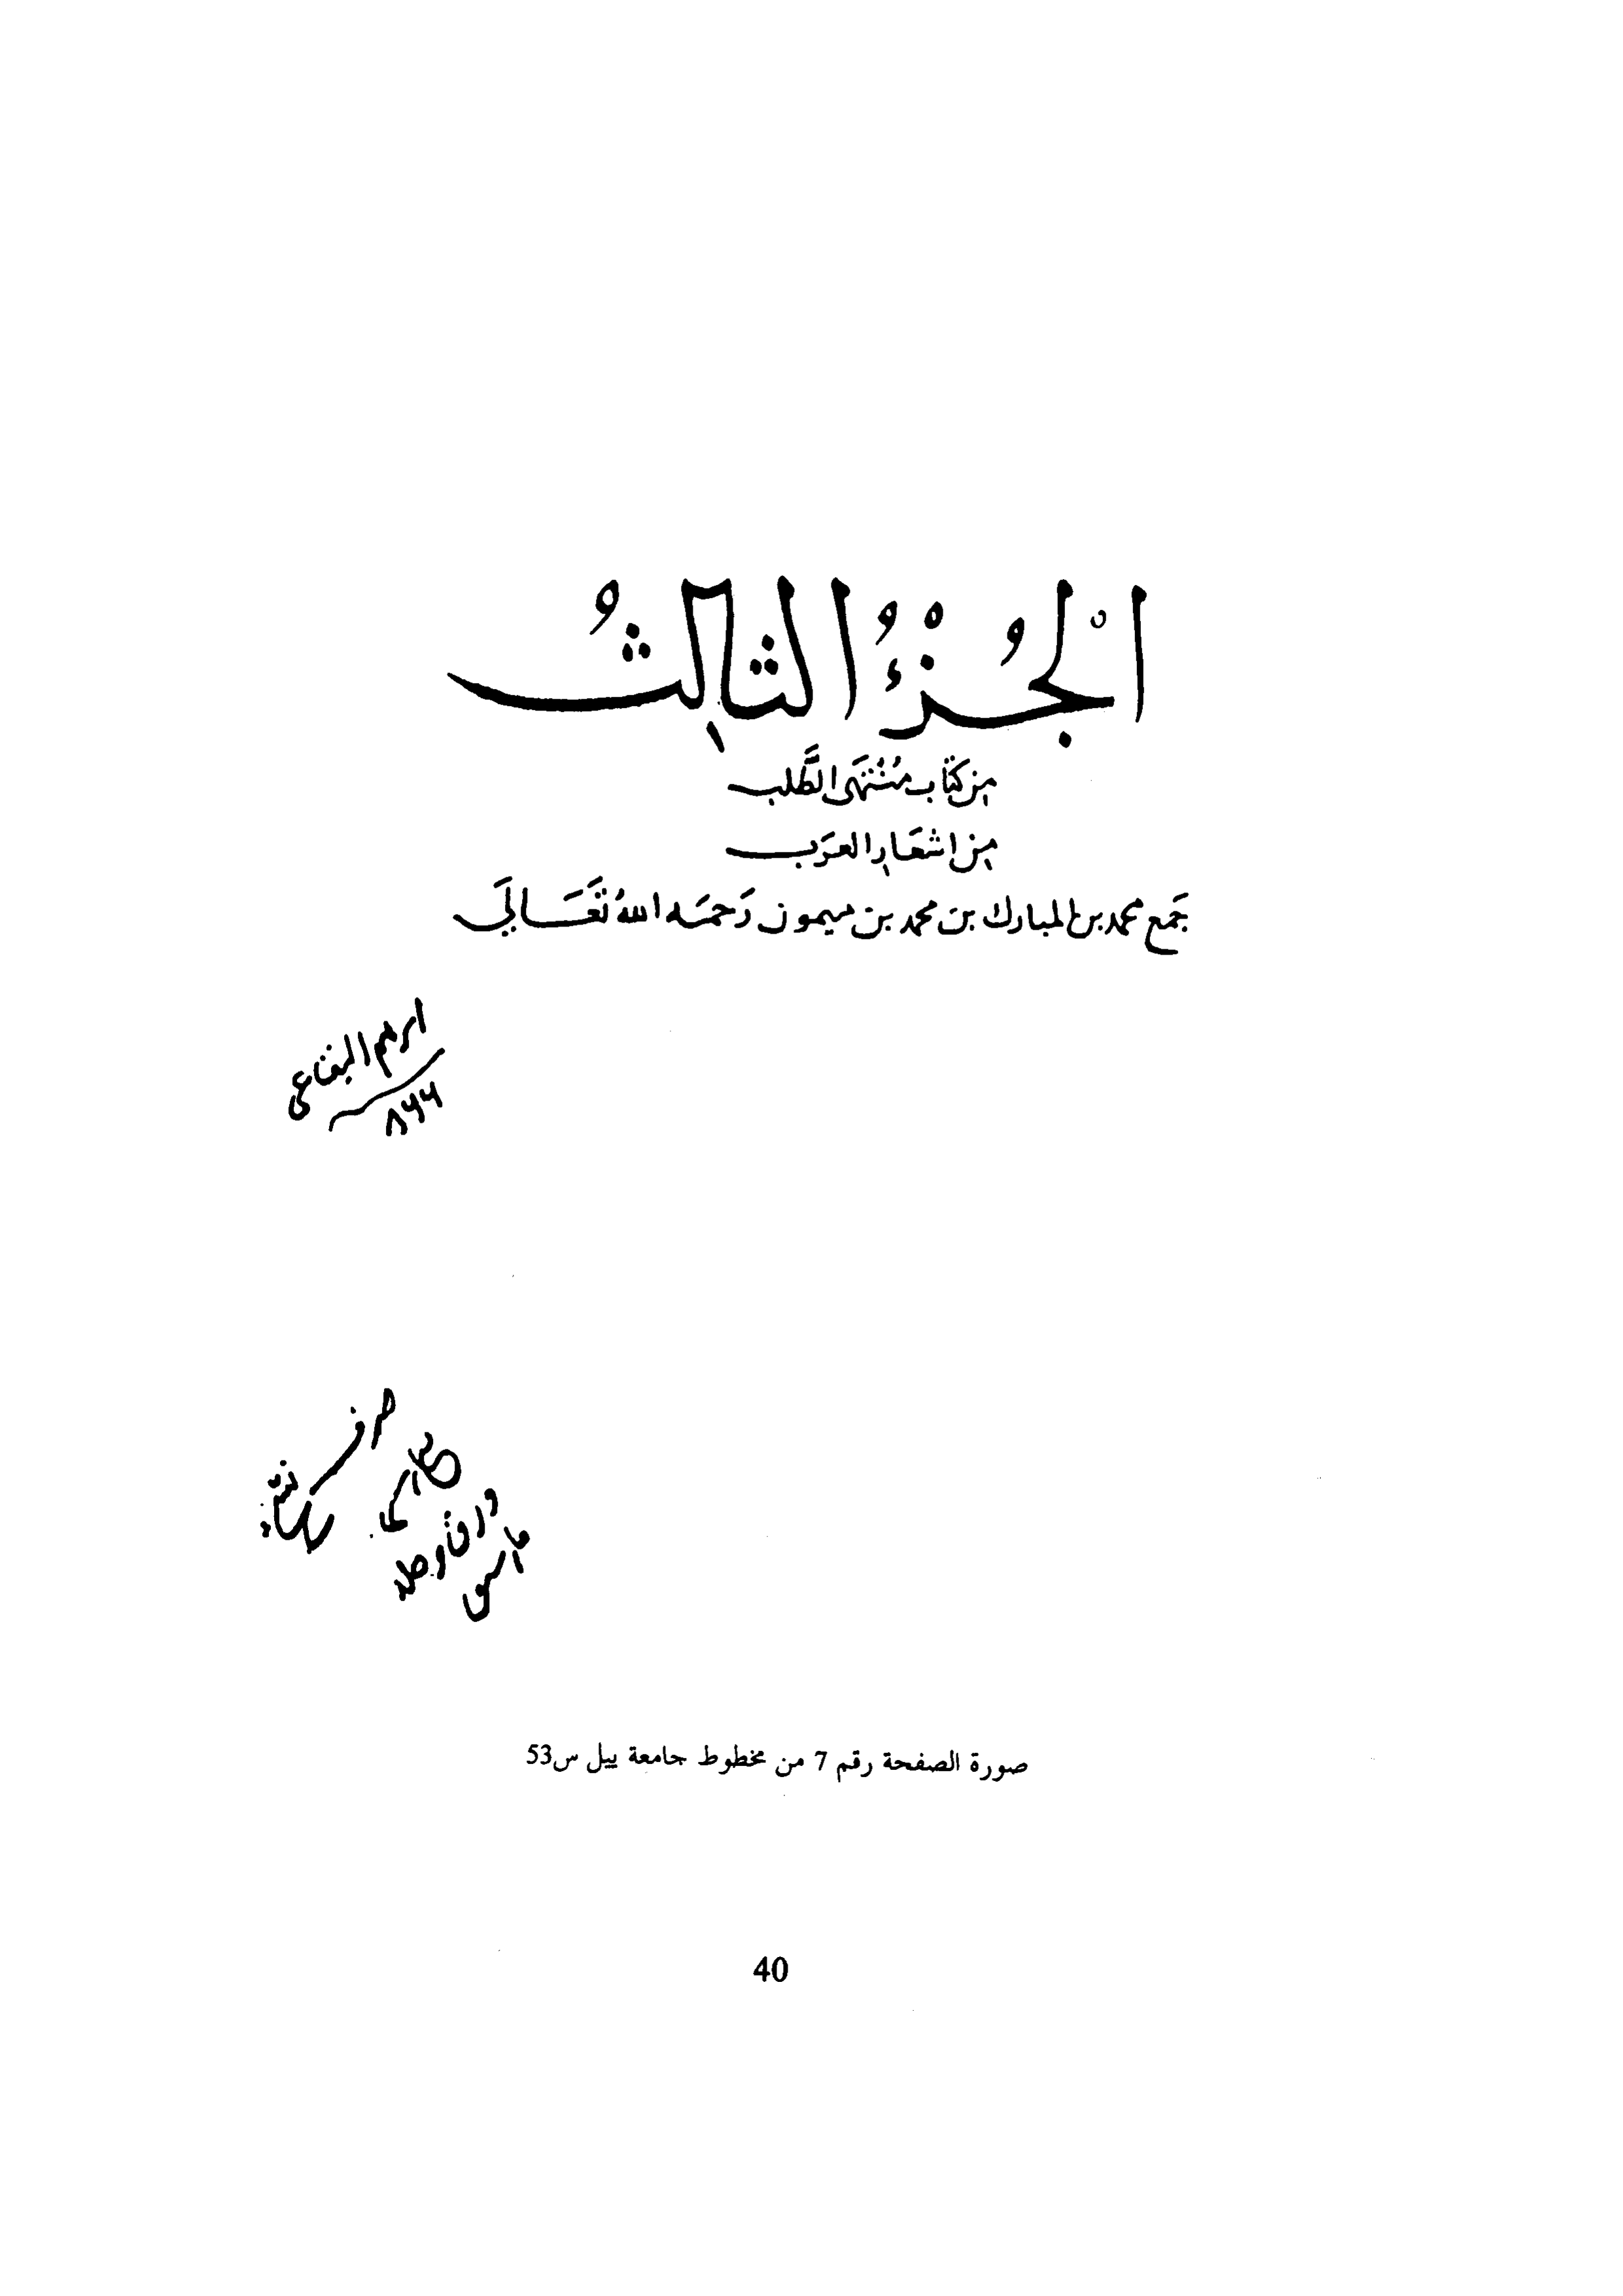 الْجُزْءُ الثَّالِثُ
مِن كتَاب مُنْتَهَى الطَّلب
مِن اشعَارِ العرَب
جَمَع محمد بن المبارك بن محمد بن ميمون رَحمَه اللهُ تَعَالَى
ابرهيم البقاعي
٨٤٤
صورة الصفحة رقم 7 من مخطوط جامعة ييل س53
40